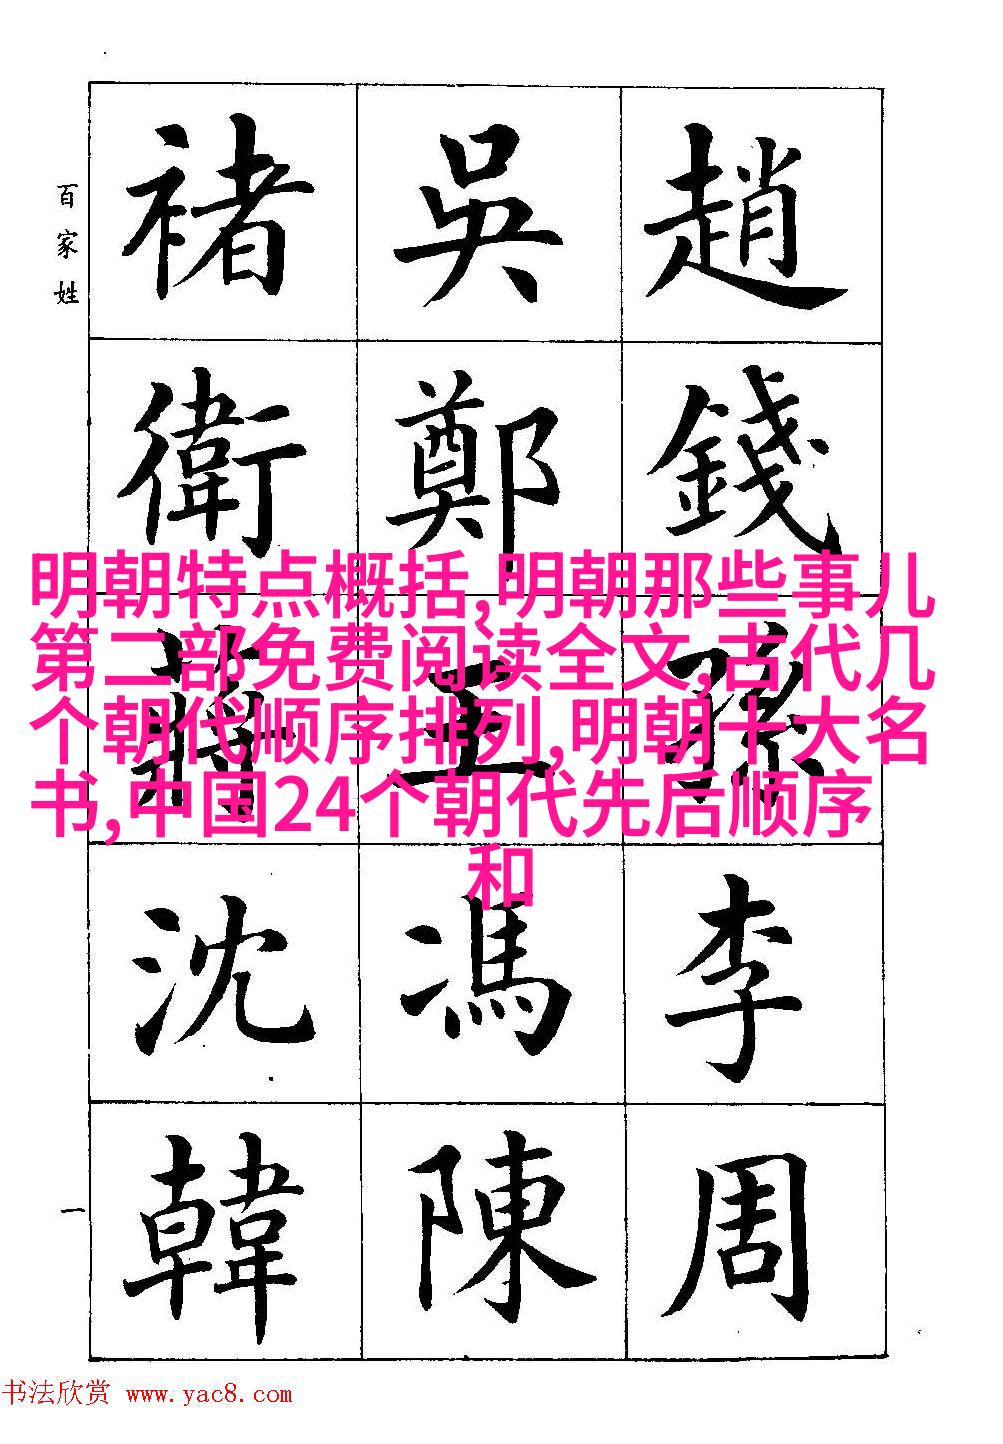 百家姓
趙錢孫李周
吳鄭王馮陳
褚衛蔣沈韓
一
明朝特点概括,明朝那些事儿
第二部免费阅读全文,古代几
个朝代顺序排列,明朝十大名
书,中国24个朝代先后顺序
和
书法欣赏 www.yac8.com